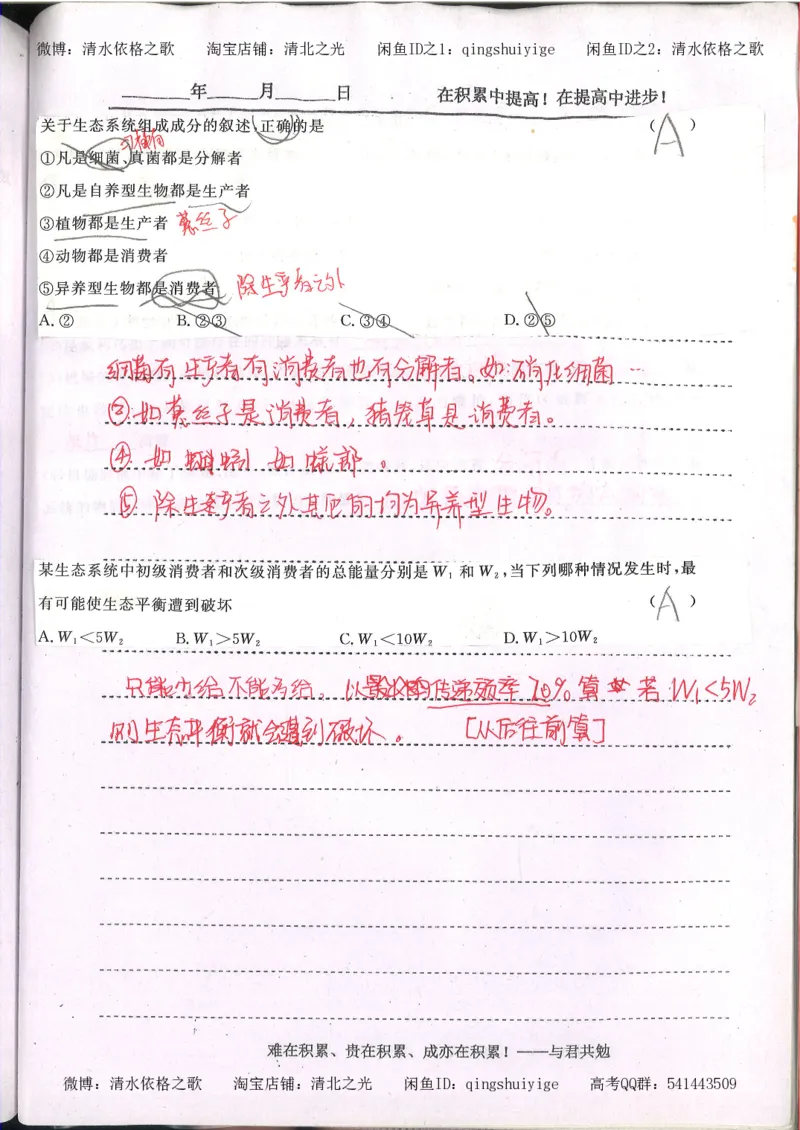 微博：清水依格之歌 淘宝店铺：清北之光 闲鱼ID之1：qingshuiyige 闲鱼ID之2：清水依格之歌
______年______月______日 在积累中提高！在提高中进步！
关于生态系统组成成分的叙述，正确的是 （A）
①凡是细菌、真菌都是分解者
②凡是自养型生物都是生产者
③植物都是生产者 菟丝子
④动物都是消费者
⑤异养型生物都是消费者 除生产者之外
A.② B.②③ C.③④ D.②⑤
细菌有生产者有消费者也有分解者。如：硝化细菌…
③如菟丝子是消费者，猪笼草是消费者。
④.如蚯蚓 如蜣郎。
⑤.除生产者之外其它的均为异养型生物。
某生态系统中初级消费者和次级消费者的总能量分别是W₁和W₂，当下列哪种情况发生时，最
有可能使生态平衡遭到破坏 （A）
A.W₁＜5W₂ B.W₁＞5W₂ C.W₁＜10W₂ D.W₁＞10W₂
传递效率20%算 若W₁<5W₂
则生态平衡就会遭到破坏。 [从后往前算]
难在积累、贵在积累、成亦在积累！——与君共勉
微博：清水依格之歌 淘宝店铺：清北之光 闲鱼ID：qingshuiyige 高考QQ群：541443509